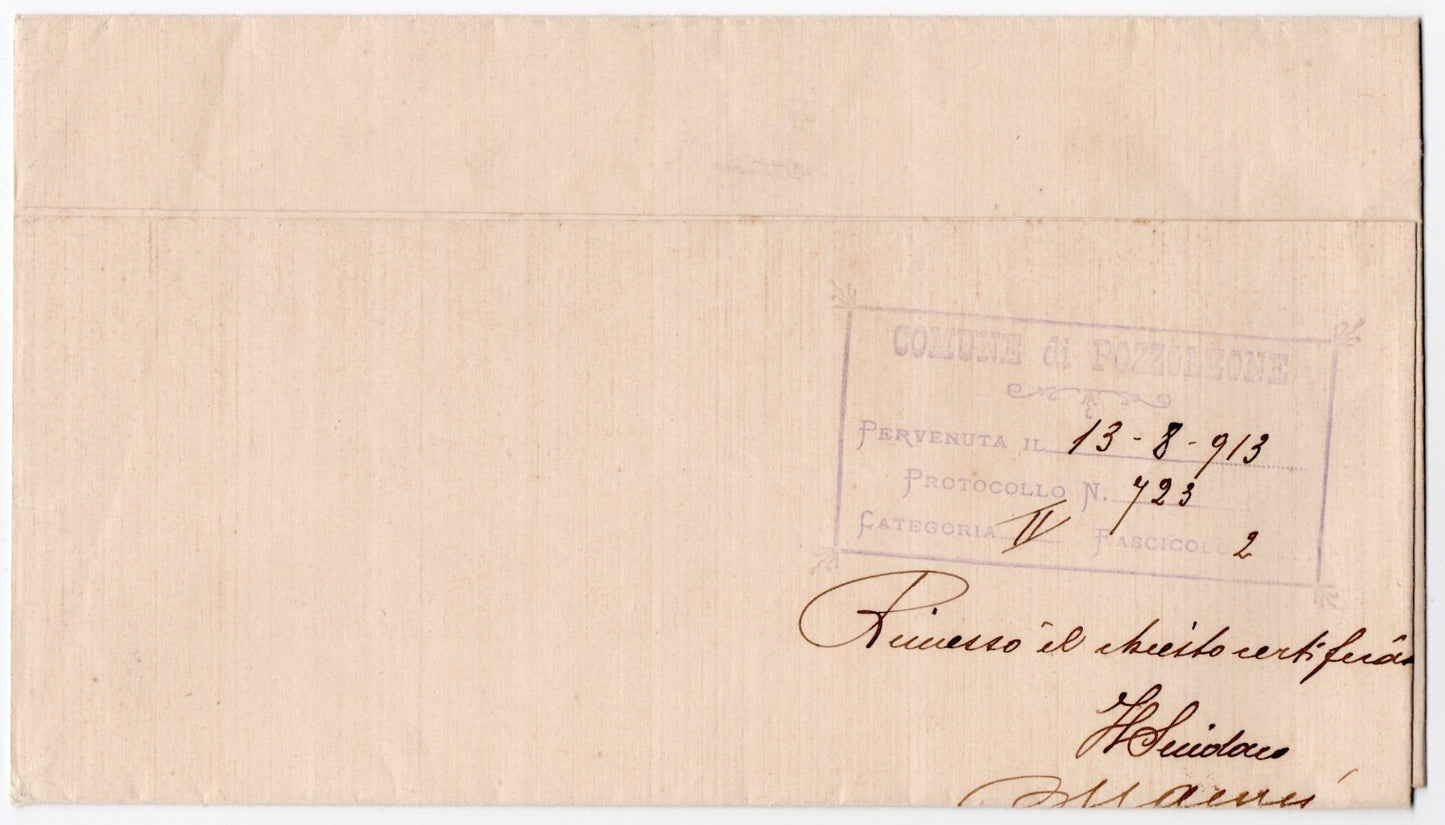 COMUNE di POZZOLEONE
PERVENUTA IL 13-8-913
PROTOCOLLO N. 723
CATEGORIA II FASCICOLO 2
Rimesso il chiesto
Il Sindaco